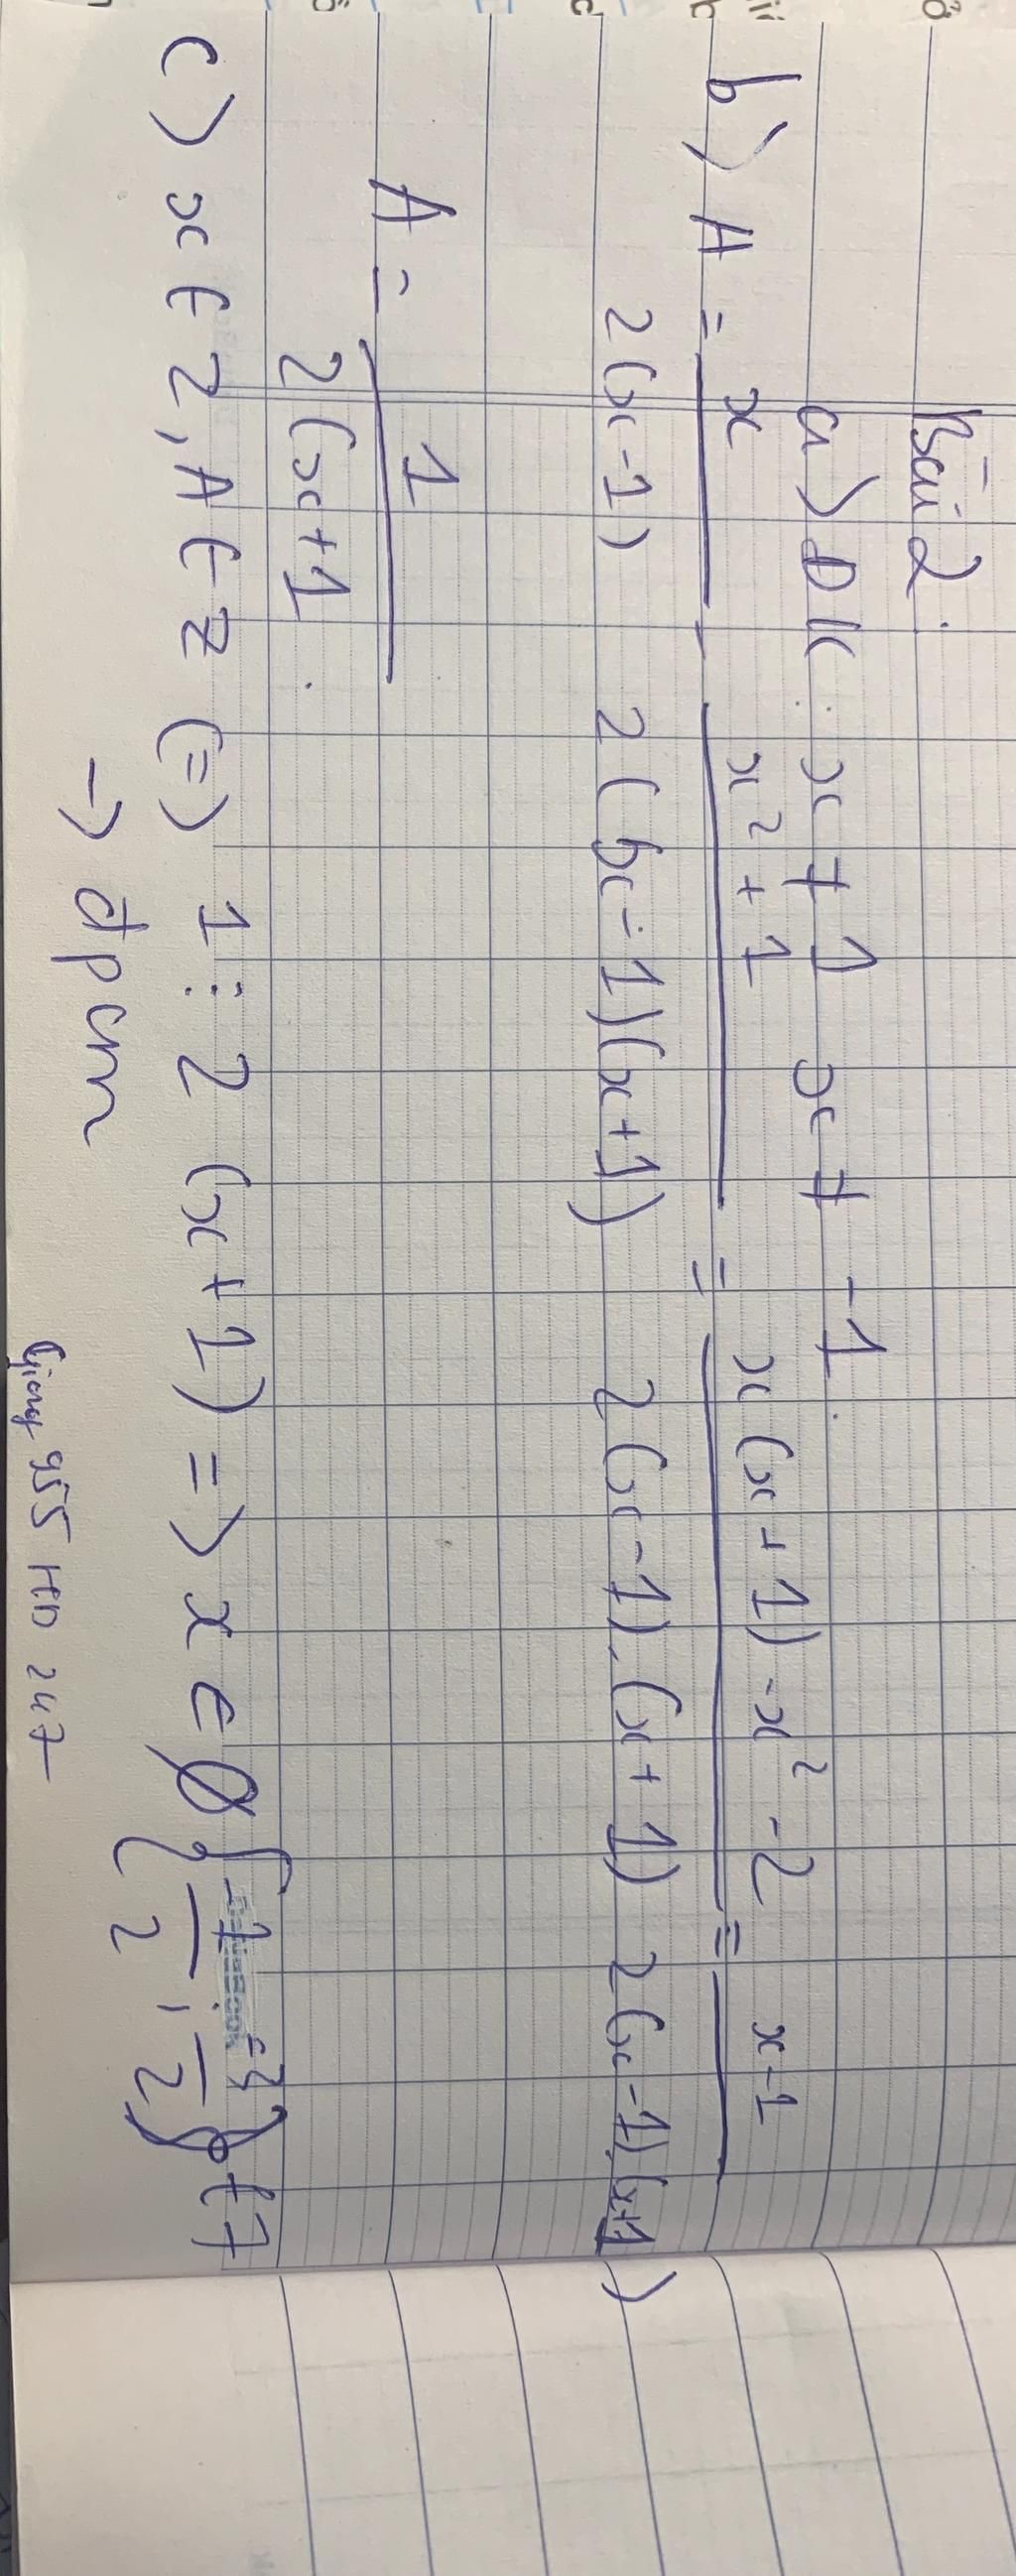 Bài 2:
a) ĐK: x ≠ 1 x ≠ -1.
b) A = x / 2(x-1) - x² + 1 / 2(x-1)(x+1) = x(x+1) - x² - 2 / 2(x-1).(x+1) = x-1 / 2(x-1).(x+1)
A = 1 / 2(x+1.
c) x ∈ Z, A ∈ Z (=) 1 ⋮ 2 (x+1) => x ∈ { -1/2 ; -3/2 }
→ đpcm
Giang 955 HD 247